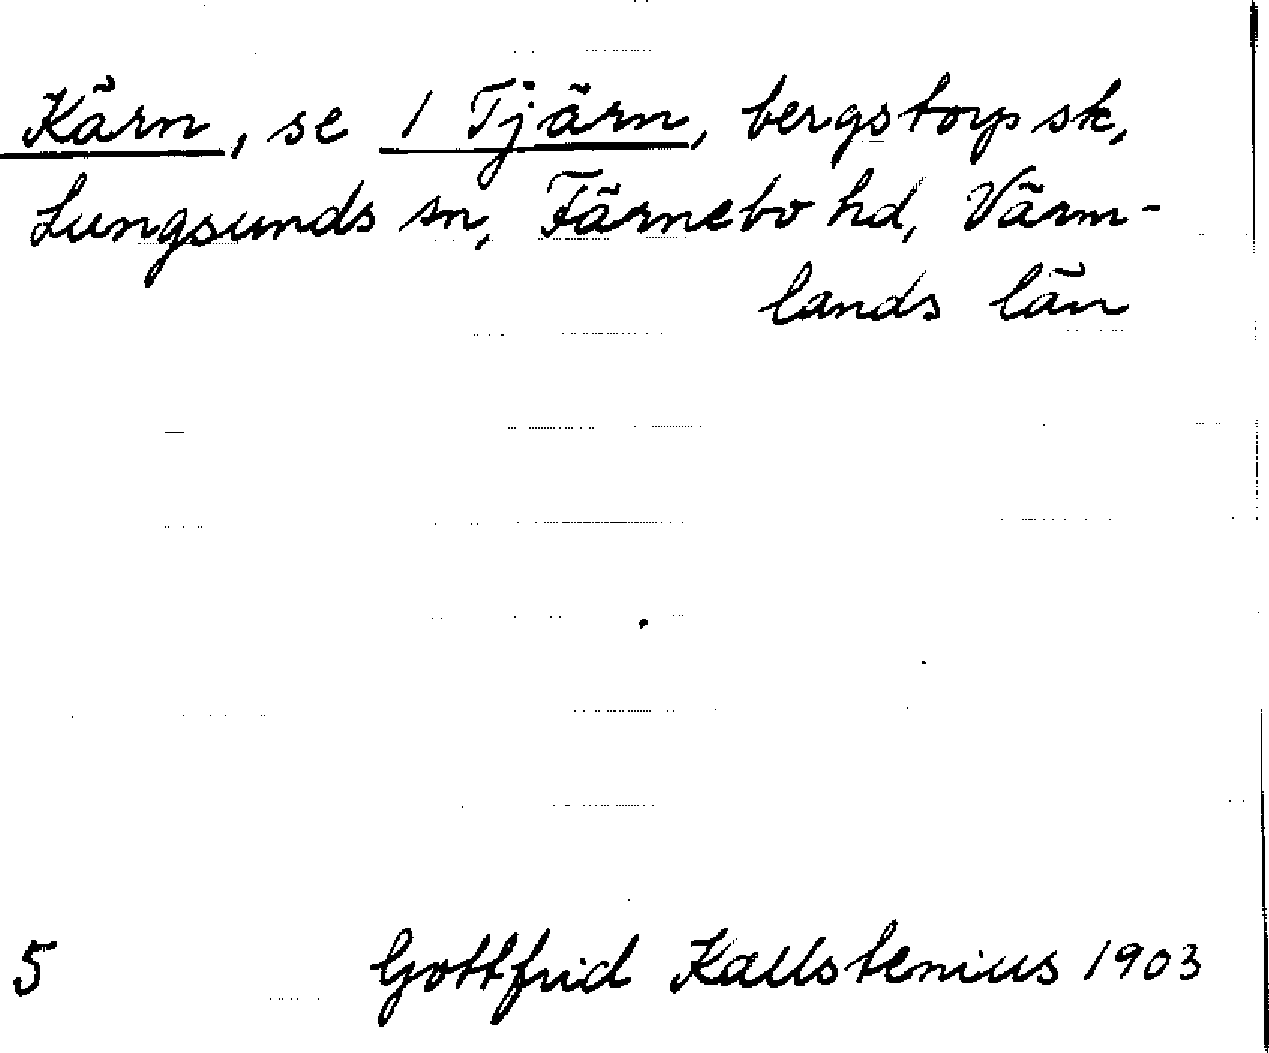 Kärn, se 1 Tjärn, bergstorpsk,
Lungsunds sn, Färnebo hd, Värm-
lands län
5 Gottfrid Kallstenius 1903